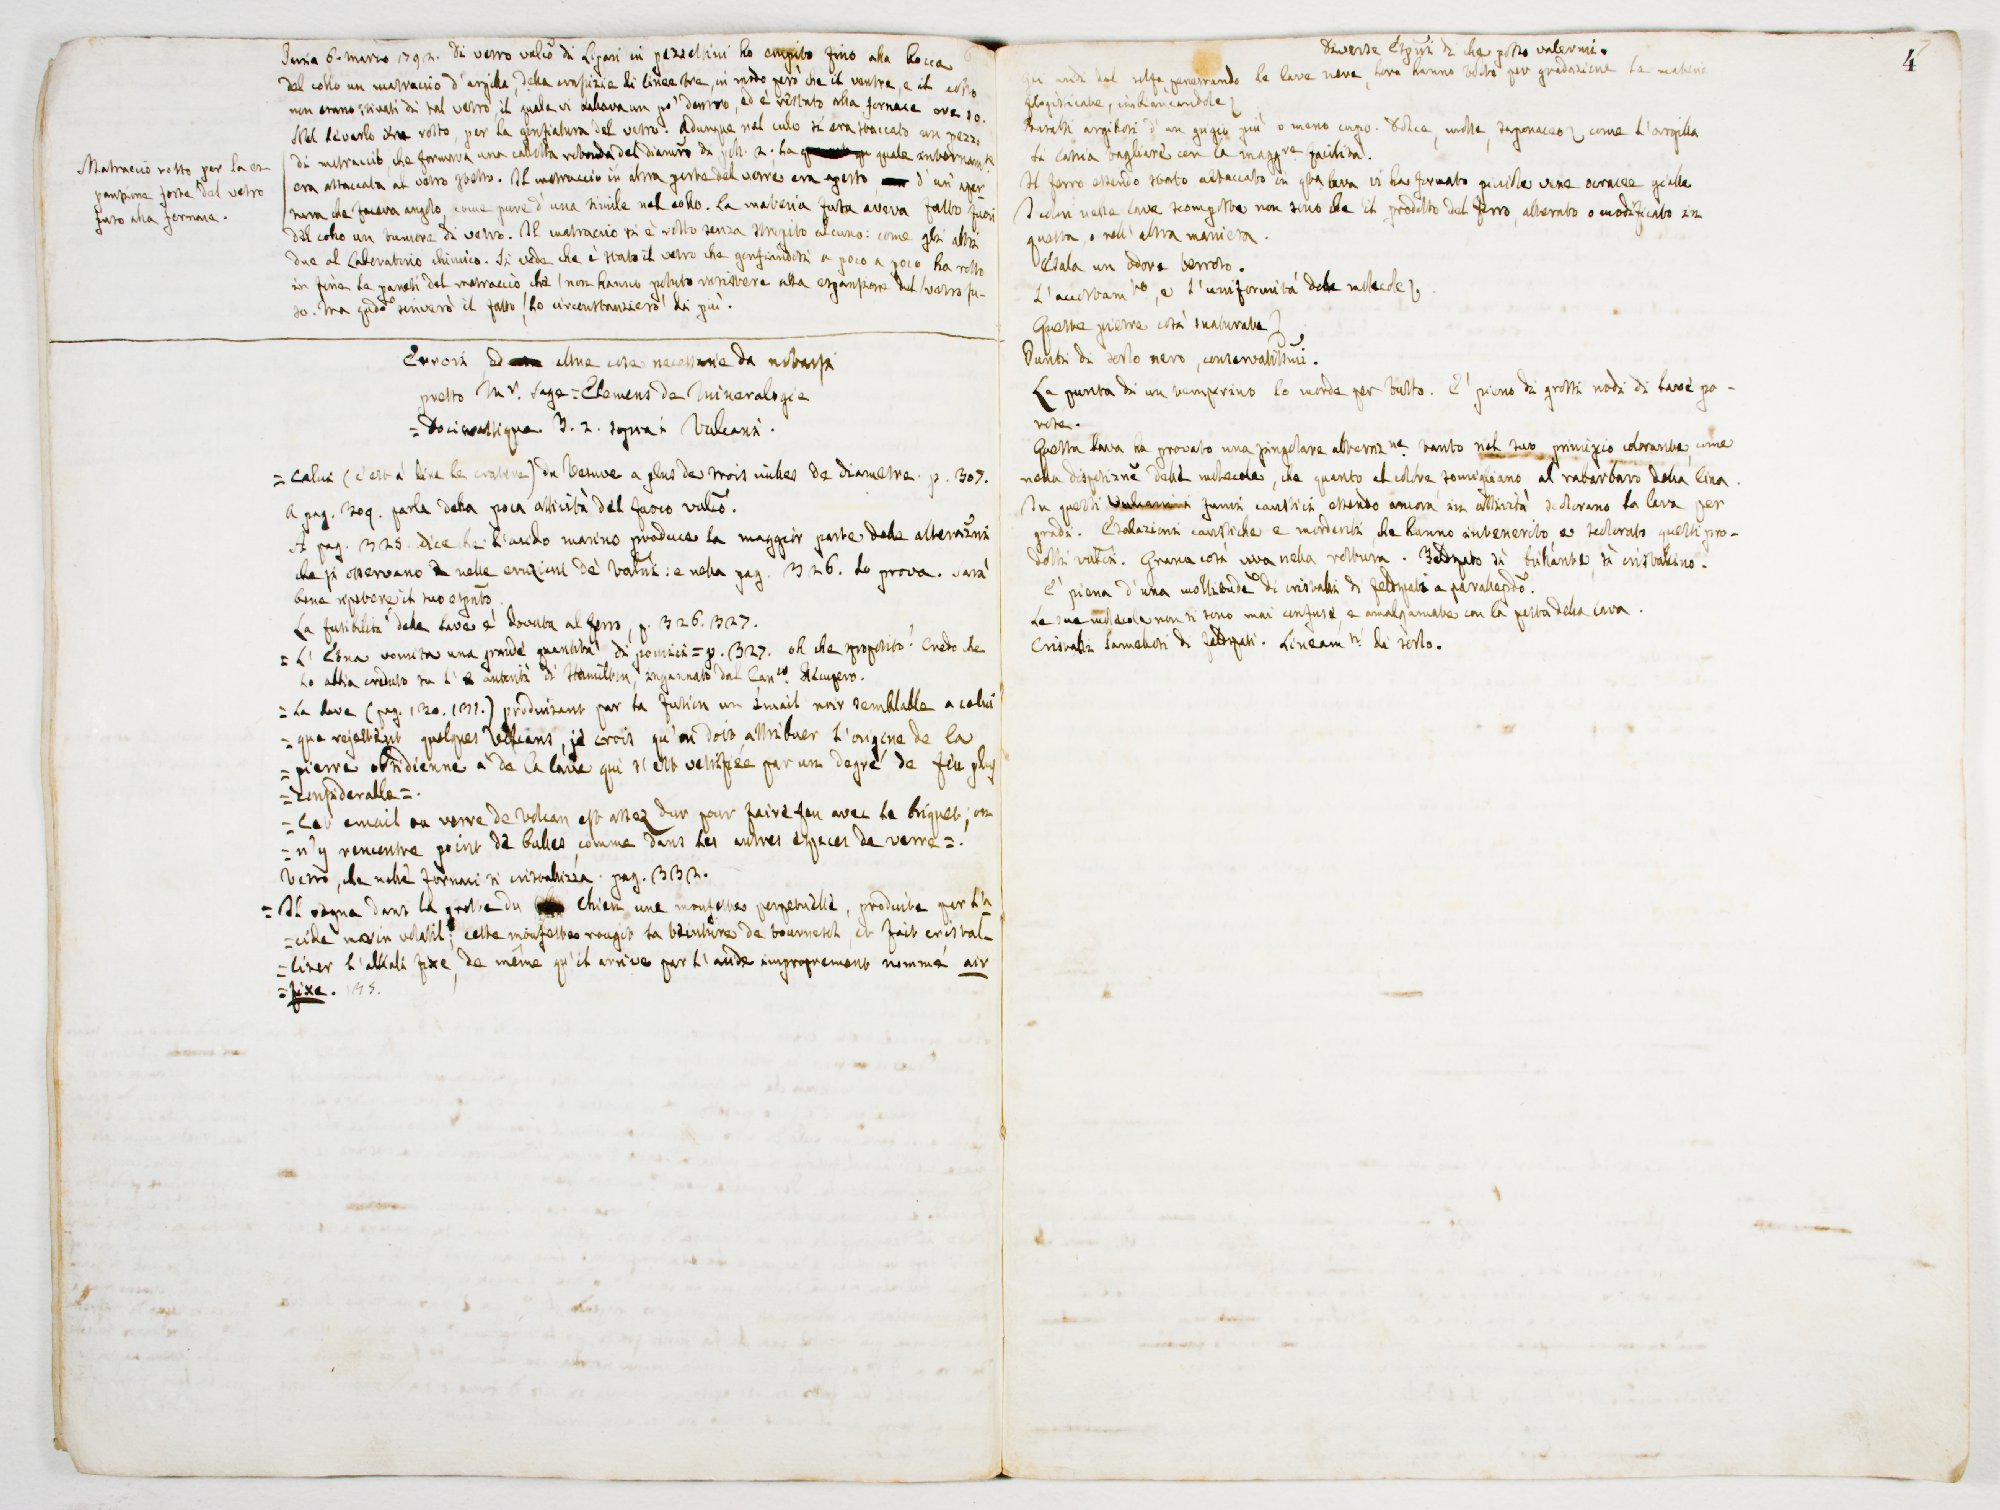 Pavia 6. marzo 1792. Di vetro valc̃o di Lipari in pezzettini ho empito fino alla bocca
del collo un matraccio d'argilla, della crassizie di linee tre, in modo però che il ventre, e il collo
non erano stivati di tal vetro il quale vi ballava un po' dentro, ed è restato alla fornace ore 20.
Nel levarlo era rotto, per la gonfiatura del vetro. Adunque nel culo si era staccato un pezzo
di matraccio, che formava una calotta rotonda del diametro di poll. 2. la quale internam.te
era attaccata al vetro stesso. Il matraccio in altra parte del ventre era aperto, d'un' aper-
tura che faceva angolo, come pure d'una simile nel collo. La materia fusa aveva fatto fuori
del collo un tumore di vetro. Il matraccio si è rotto senza strepito alcuno: come gli altri
due al Laboratorio chimico. Si vede che è stato il vetro che gonfiandosi a poco a poco ha rotto
in fine le pareti del matraccio che non hanno potuto resistere alla espansione del vetro fu-
so. Ma qũdo scriverò il fatto, lo circonstanzierò di più.
Matraccio rotto per la es-
pansione forte del vetro
fuso alla fornace.
Errori, ed altre cose necessarie da notarsi
presso Mr. Sage = Elemens de Mineralogie
= Docimastique. T. 2. sopra i Vulcani.
= Celui (c'est à dire le cratere) du Vesuve a plus de trois milles de diametre. p. 307.
A pag. 309. parla della poca attività del fuoco valc̃o.
A pag. 325. dice che l'acido marino produce la maggior parte delle alterazioni
che si osservano nelle eruzioni de' Valc̃ni: e nella pag. 326. lo prova. Sarà
bene ripetere il suo esp̃to.
La fusibilità delle lave è dovuta al ferro, p. 326. 327.
= L' Etna vomita una grande quantità di pomici = p. 327. oh che sproposito! Credo che
lo abbia creduto su l' autorità di Hamilton, ingannato dal Can.co Recupero.
= La lave (pag. 130. 131.) produisant par la fusion un émail noir semblable a celui
= que rejettent quelques Volcans, je crois qu'on doit attribuer l'origine de la
= pierre obsidienne a de la lave qui s'est vetrifiée par un degré de feu plus
= considerable =.
= Cet email ou verre de Volcan est assez dur pour faire feu avec le briquet; on
= n'y rencontre point de bulles, comme dans les autres especes de verre =.
Vetro, che nelle fornaci si cristallizza. pag. 332.
= Il regne dans la grotte du chien une moufette perpetuelle, produite par l'a
= cide marin volatil; cette moufette rougit la teinture de tournesol, et fait cristal-
= lizer l'alkali fixe, de même qu'il arrive par l'acide improprement nommé air
= fixe. 135.
4
Diverse Esp̃ni di che posso valermi.
Gli acidi del solfo penetrando le lave nere, loro hanno tolto per gradazione le materie
flogisticate, imbiancandole.
Basalti argillosi d'un grigio più o meno cupo. Dolce, molle, saponaceo, come l'argilla
si lascia tagliare con la maggre facilità.
Il ferro essendo stato attaccato in q̃ta lava vi ha formato picciole vene ocracee gialle
I colori nelle lave scomposte non sono che il prodotto del ferro, alterato o modificato in
questa, o nell'altra maniera.
Esala un odore terroso.
L'accostam.to, e l'uniformità delle molecole.
Queste pietre così snaturate
Punti di sorlo nero, conservatissimi.
La punta di un temperino lo morde per tutto. E' pieno di grossi nodi di lave po-
rose.
Questa lava ha provato una singolare alteraz.ne tanto nel suo principio colorante, come
nella disposizione delle molecole, che quanto al colore somigliano al rabarbaro della Cina.
In questi fumi caustici essendo ancora in attività scolorano la lava per
gradi. Esalazioni caustiche e mordenti, che hanno intenerito, e scolorato questi pro-
dotti vulc̃ni. Grana così viva nella rottura. Feldspato sì brillante, sì cristallino.
E' piena d'una moltitudẽ di cristalli di feldspati a parallegr̃o.
Le sue molecole non si sono mai confuse e amalgamate con la pasta della lava.
Cristalli lamellosi di feldspati. Lineam.ti di sorlo.